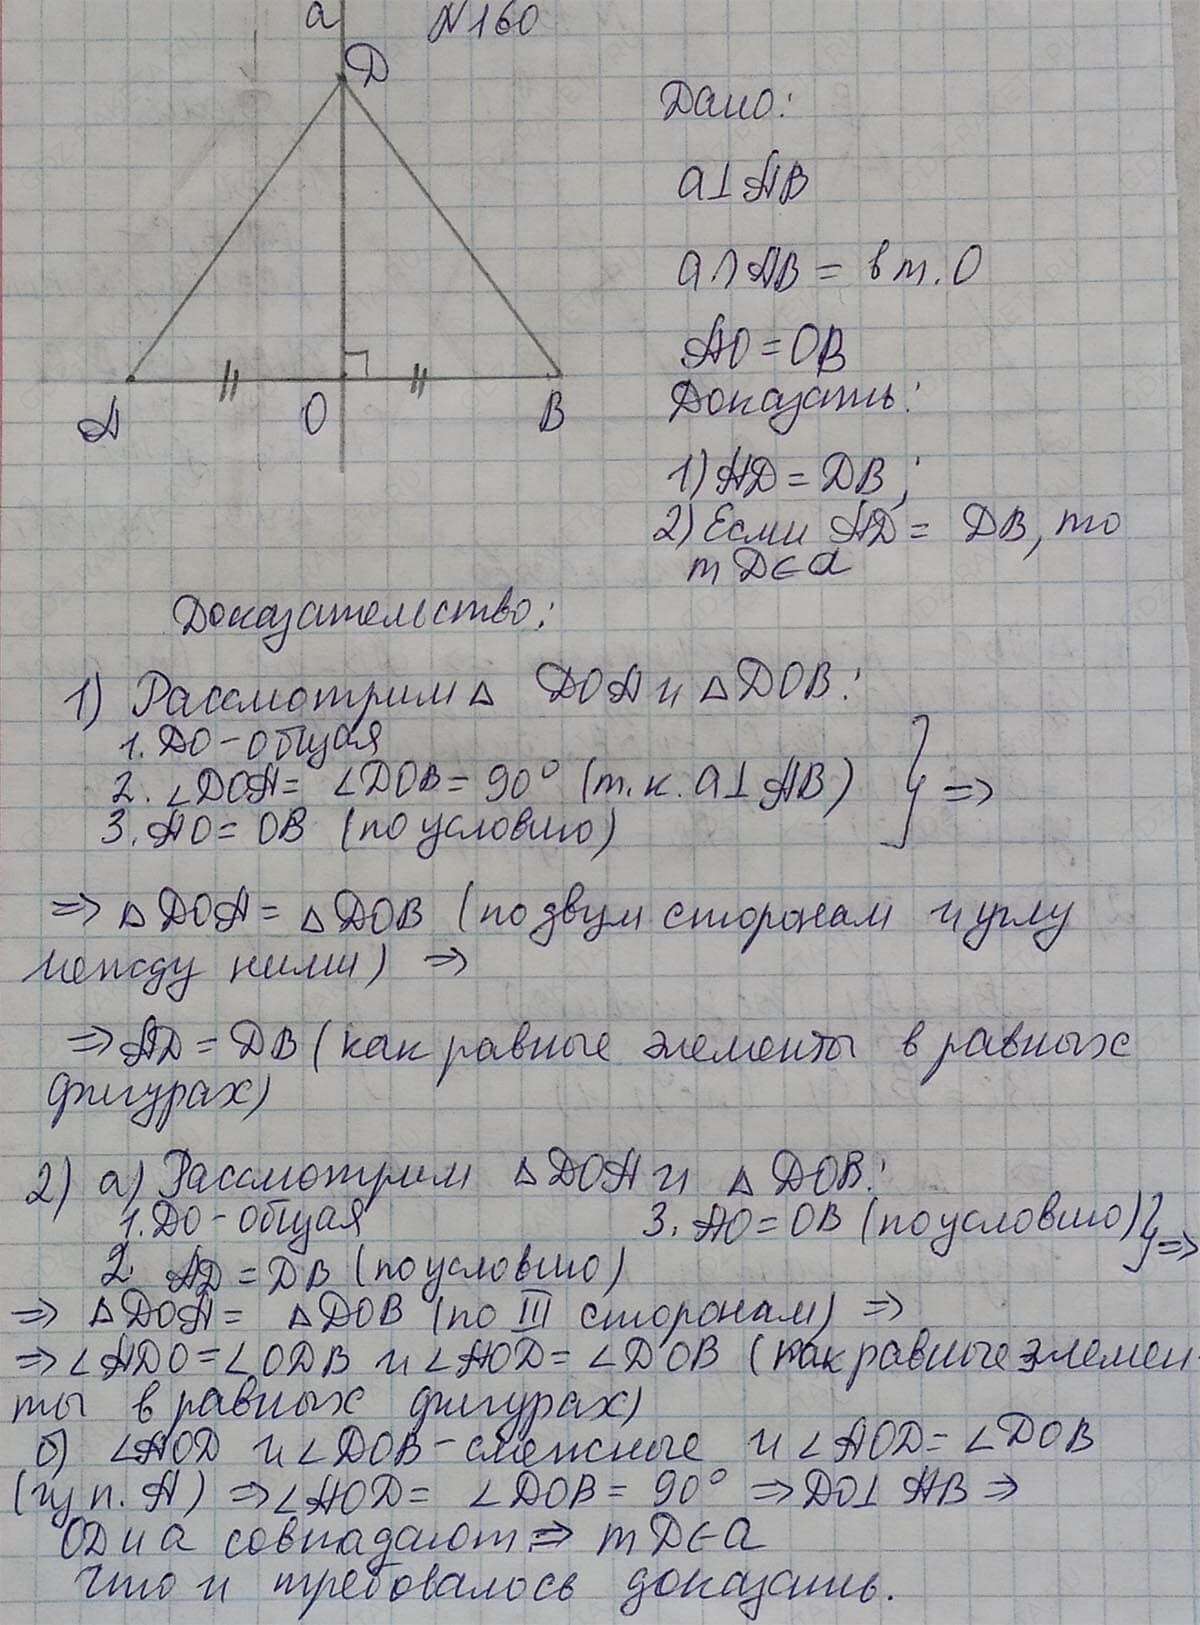 a
N160
D
A
O
B
Дано:
a⊥AB
a∩AB = в т. O
AO = OB
Доказать:
1) AD = DB;
2) Если AD = DB, то
т D∈a
Доказательство:
1) Рассмотрим △ DOA и △DOB:
1. DO - общая
2. ∠DOA = ∠DOB = 90° (т.к. a⊥AB)
3. AO = OB (по условию)
} =>
=> △DOA = △DOB (по двум сторонам и углу
между ними) =>
=> AD = DB (как равные элементы в равных
фигурах)
2) а) Рассмотрим △DOA и △DOB:
1. DO - общая 3. AO = OB (по условию) } =>
2. AD = DB (по условию)
=> △DOA = △DOB (по III сторонам) =>
=> ∠ADO = ∠ODB и ∠AOD = ∠DOB (как равные элемен-
ты в равных фигурах)
б) ∠AOD и ∠DOB - смежные и ∠AOD = ∠DOB
(из п. А) => ∠AOD = ∠DOB = 90° => DO⊥AB =>
OD и a совпадают => т D∈a
Что и требовалось доказать.